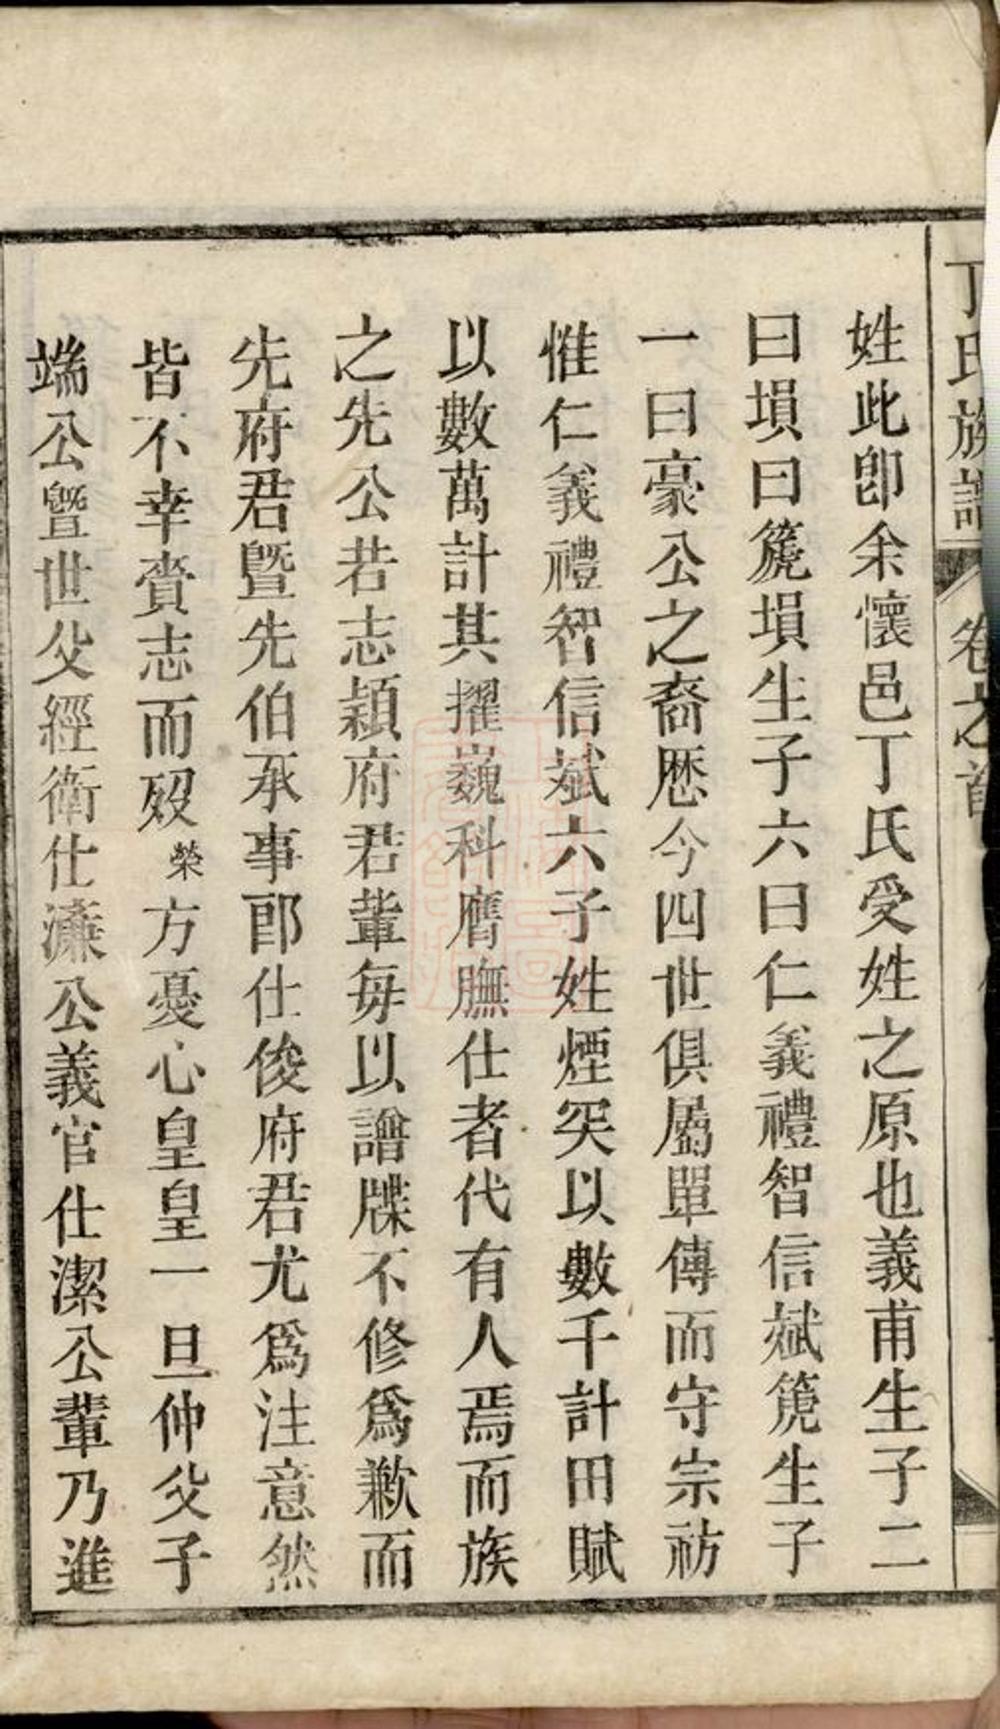 丁氏族譜 卷之首
姓此卽余懷邑丁氏受姓之原也義甫生子二
曰塤曰箎塤生子六曰仁義禮智信斌箎生子
一曰豪公之裔歷今四世俱屬單傳而守宗祊
惟仁義禮智信斌六子姓煙突以數千計田賦
以數萬計其擢巍科膺膴仕者代有人焉而族
之先公若志穎府君輩每以譜牒不修爲歉而
先府君曁先伯承事郎仕俊府君尤爲注意然
皆不幸賫志而歿榮方憂心皇皇一旦仲父子
端公曁世父經衛仕濂公義官仕潔公輩乃進